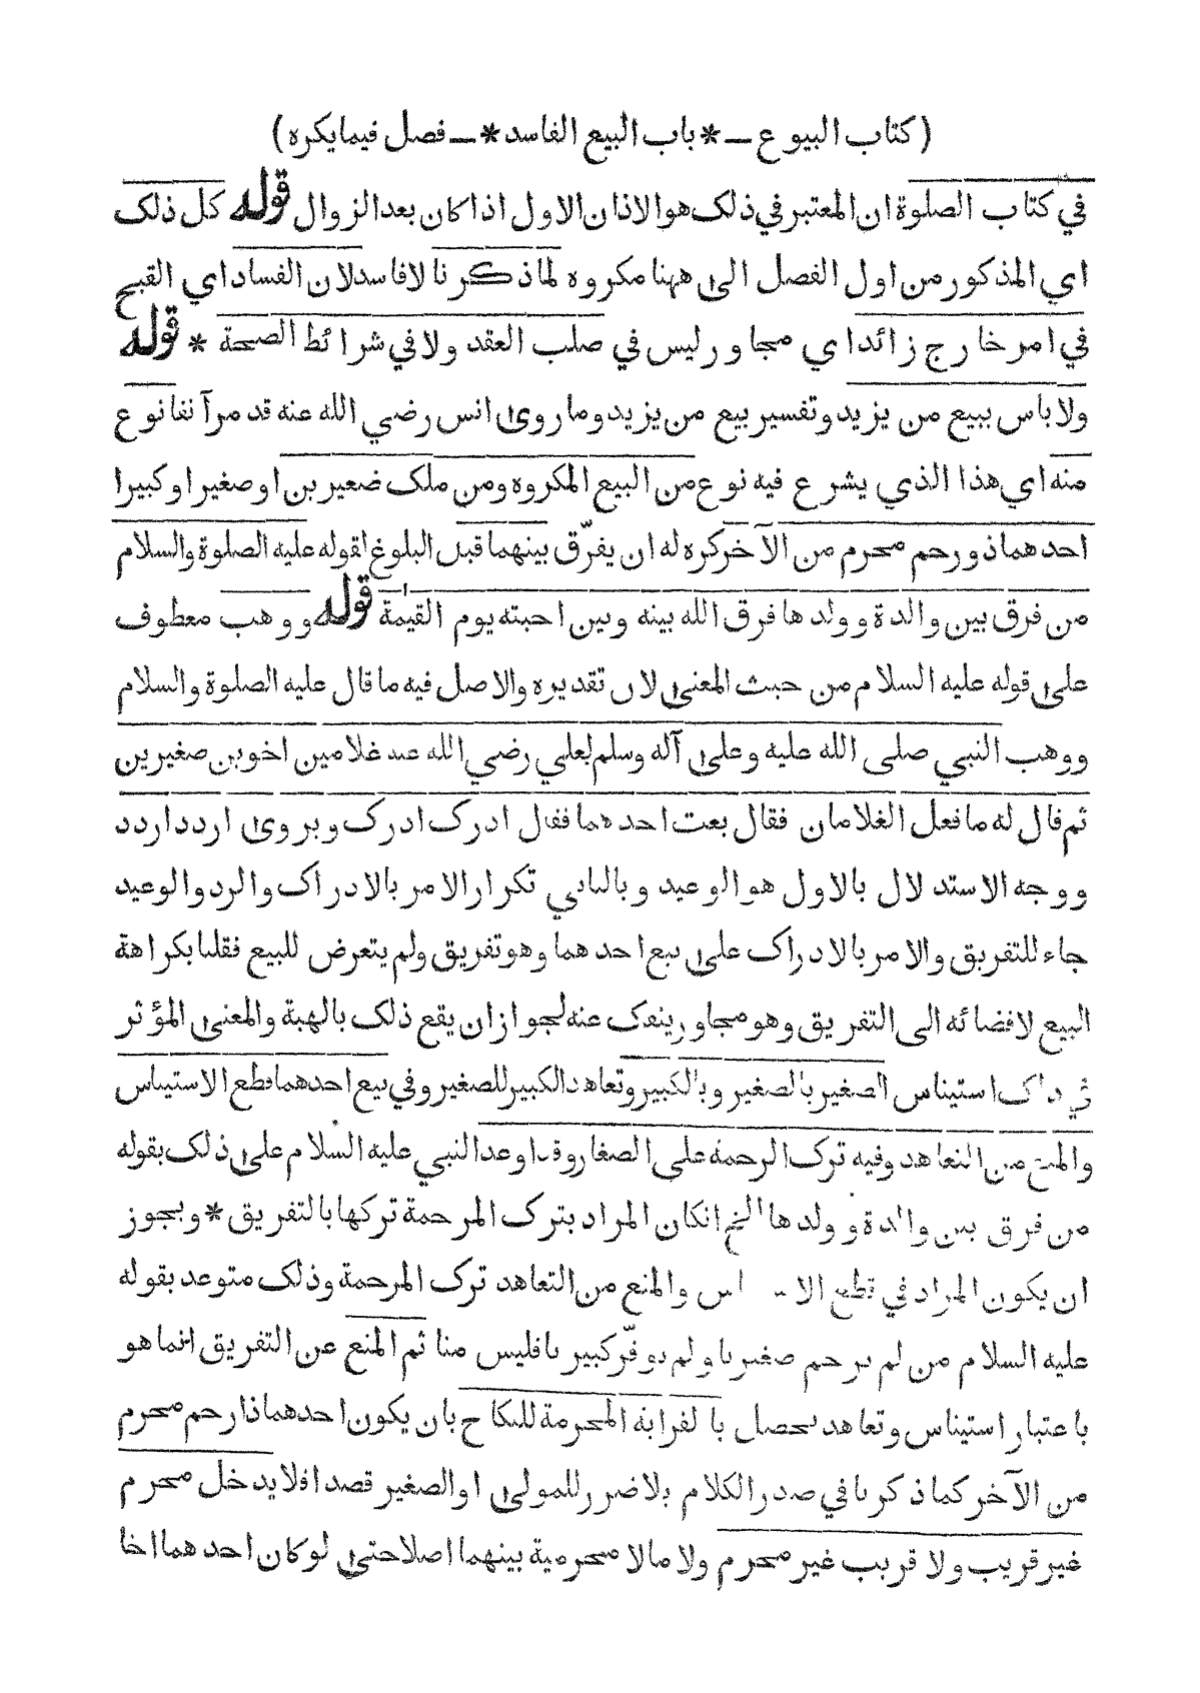 (كتاب البيوع — * باب البيع الفاسد * — فصل فيما يكره)
في كتاب الصلوة ان المعتبر في ذلك هو الاذان الاول اذا كان بعد الزوال قوله كل ذلك
اي المذكور من اول الفصل الى ههنا مكروه لما ذكرنا لا فاسد لان الفساد اي القبح
في امر خارج زائد اي مجاور ليس في صلب العقد ولا في شرائط الصحة * قوله
ولا باس ببيع من يزيد وتفسير بيع من يزيد وما روى انس رضي الله عنه قد مر آنفا نوع
منه اي هذا الذي يشرع فيه نوع من البيع المكروه ومن ملك صغيرين او صغيرا وكبيرا
احدهما ذو رحم محرم من الآخر كره له ان يفرّق بينهما قبل البلوغ لقوله عليه الصلوة والسلام
من فرق بين والدة وولدها فرق الله بينه وبين احبته يوم القيمة قوله ووهب معطوف
على قوله عليه السلام من حيث المعنى لان تقديره والاصل فيه ما قال عليه الصلوة والسلام
ووهب النبي صلى الله عليه وعلى آله وسلم لعلي رضي الله عنه غلامين اخوين صغيرين
ثم قال له ما فعل الغلامان فقال بعت احدهما فقال ادرك ادرك ويروى اردد اردد
ووجه الاستدلال بالاول هو الوعيد وبالثاني تكرار الامر بالادراك والرد والوعيد
جاء للتفريق والامر بالادراك على بيع احدهما وهو تفريق ولم يتعرض للبيع فقلنا بكراهة
البيع لافضائه الى التفريق وهو مجاور ينفك عنه لجواز ان يقع ذلك بالهبة والمعنى المؤثر
في ذلك استيناس الصغير بالصغير وبالكبير وتعاهد الكبير للصغير وفي بيع احدهما قطع الاستيناس
والمنع من التعاهد وفيه ترك الرحمة على الصغار وقد اوعد النبي عليه السلام على ذلك بقوله
من فرق بين والدة وولدها الخ ان كان المراد بترك المرحمة تركها بالتفريق * ويجوز
ان يكون المراد في قطع والمنع من التعاهد ترك المرحمة وذلك متوعد بقوله
عليه السلام من لم يرحم صغيرنا ولم يوقّر كبيرنا فليس منا ثم المنع عن التفريق انما هو
باعتبار استيناس وتعاهد يحصل بالقرابة المحرمة للنكاح بان يكون احدهما ذا رحم محرم
من الآخر كما ذكرنا في صدر الكلام بلا ضرر للمولى او الصغير قصدا فلا يدخل محرم
غير قريب ولا قريب غير محرم ولا ما لا محرمية بينهما اصلا حتى لو كان احدهما اخا